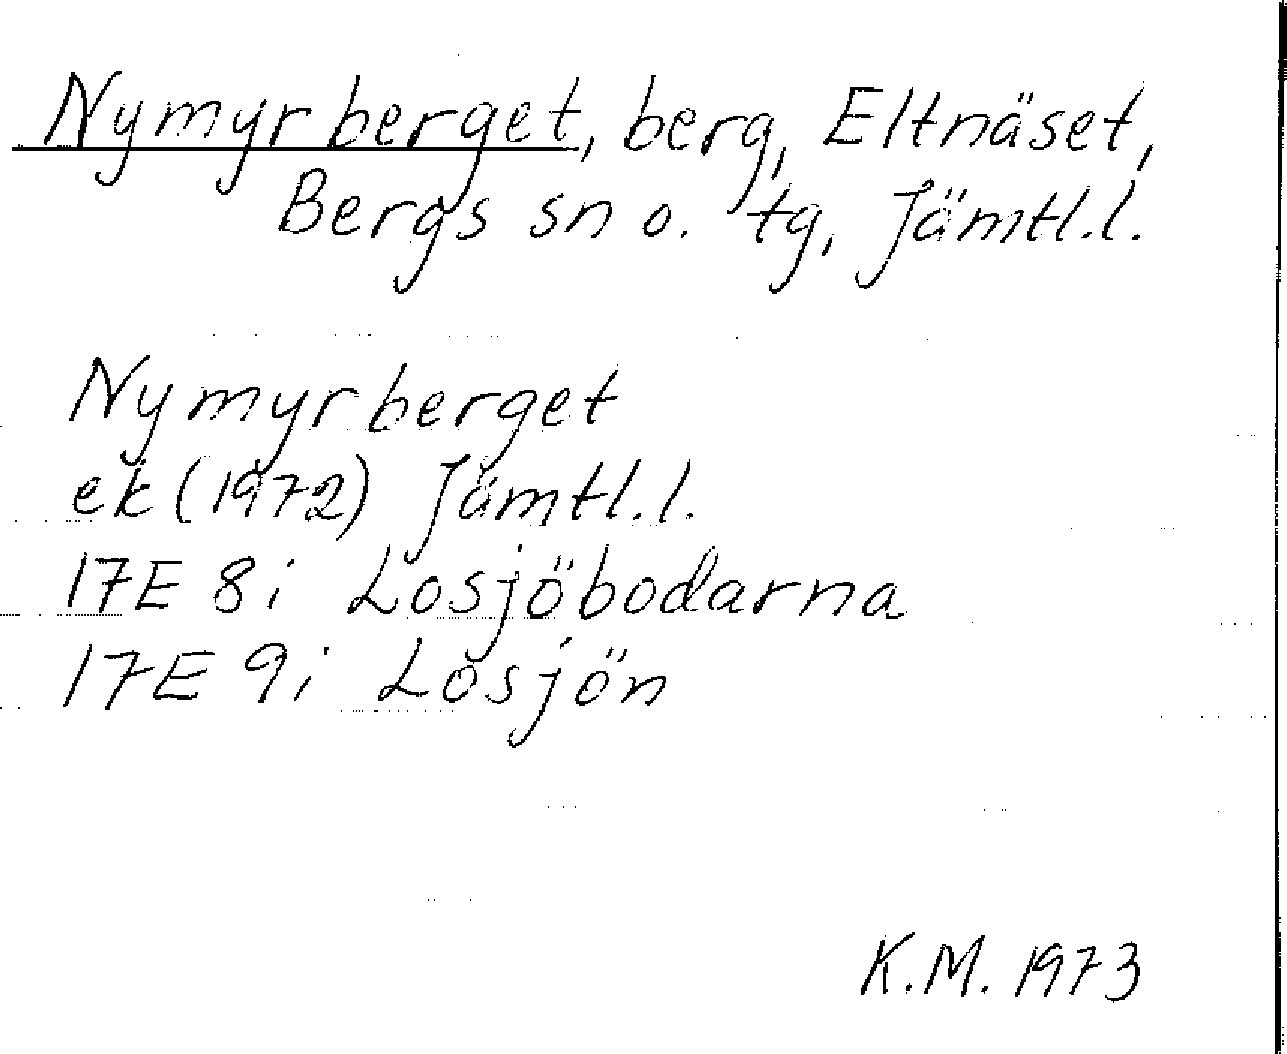 Nymyrberget, berg, Eltnäset,
Bergs sn o. tg, Jämtl.l.
Nymyrberget
ek (1972) Jämtl.l.
17E 8i Losjöbodarna
17E 9i Losjön
K.M. 1973